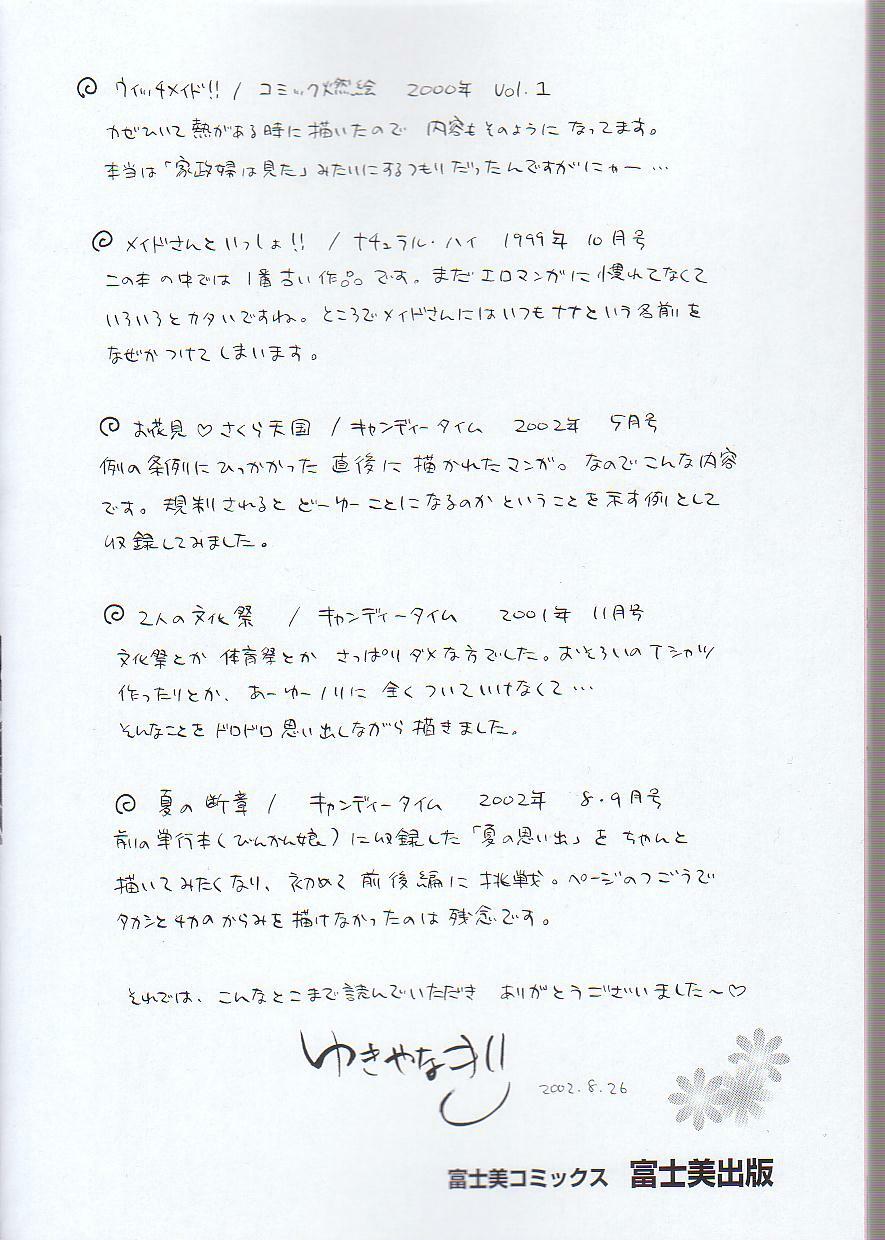 ウィッチメイド!! / コミック燃絵 2000年 Vol.1
カゼひいて熱がある時に描いたので 内容もそのように なってます。
本当は「家政婦は見た」みたいにするつもりだったんですがにゃー…
メイドさんといっしょ!! / ナチュラル・ハイ 1999年 10月号
この本の中では 1番古い作品です。まだエロマンガに慣れてなくて
いろいろとカタいですね。ところでメイドさんにはいつもナナという名前を
なぜかつけてしまいます。
お花見♡さくら天国 / キャンディータイム 2002年 5月号
例の条例にひっかかった 直後に描かれたマンガ。なのでこんな内容
です。規制されると どーゆーことになるのか ということを示す例として
収録してみました。
2人の文化祭 / キャンディータイム 2001年 11月号
文化祭とか 体育祭とか さっぱりダメな方でした。おそろいのTシャツ
作ったりとか、あーゆーノリに 全くついていけなくて…
そんなことをドロドロ思い出しながら描きました。
夏の断章 / キャンディータイム 2002年 8・9月号
前の単行本(びんかん娘)に収録した「夏の思い出」を ちゃんと
描いてみたくなり、初めて 前後編に 挑戦。ページのつごうで
タカシとチカのからみを描けなかったのは 残念です。
それでは、こんなとこまで読んでいただき ありがとうございました〜♡
ゆきやなぎ
2002.8.26
富士美コミックス 富士美出版